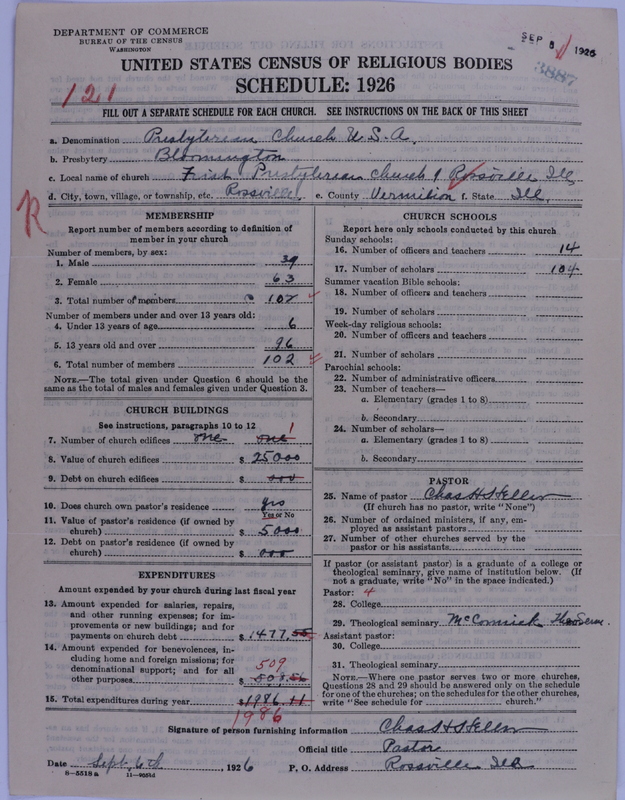 DEPARTMENT OF COMMERCE
BUREAU OF THE CENSUS
WASHINGTON
SEP 8 1926
3887
UNITED STATES CENSUS OF RELIGIOUS BODIES
SCHEDULE: 1926
121
FILL OUT A SEPARATE SCHEDULE FOR EACH CHURCH. SEE INSTRUCTIONS ON THE BACK OF THIS SHEET
a. Denomination Presbyterian Church U.S.A.
b. Presbytery Bloomington
c. Local name of church First Presbyterian Church of Rossville Ill
d. City, town, village, or township, etc. Rossville e. County Vermilion f. State Ill.
R
MEMBERSHIP
Report number of members according to definition of
member in your church
Number of members, by sex:
1. Male 39
2. Female 63
3. Total number of members 102
Number of members under and over 13 years old:
4. Under 13 years of age 6
5. 13 years old and over 96
6. Total number of members 102
NOTE.—The total given under Question 6 should be the
same as the total of males and females given under Question 3.
CHURCH BUILDINGS
See instructions, paragraphs 10 to 12
7. Number of church edifices one one 1
8. Value of church edifices $ 25000
9. Debt on church edifices $ 000
10. Does church own pastor's residence yes
Yes or No
11. Value of pastor's residence (if owned by
church) $ 5000
12. Debt on pastor's residence (if owned by
church) $ 000
EXPENDITURES
Amount expended by your church during last fiscal year
13. Amount expended for salaries, repairs,
and other running expenses; for im-
provements or new buildings; and for
payments on church debt $ 1477.55
14. Amount expended for benevolences, in-
cluding home and foreign missions; for
denominational support; and for all
other purposes 509 $ 508.56
15. Total expenditures during year $ 1986.11
1986
CHURCH SCHOOLS
Report here only schools conducted by this church
Sunday schools:
16. Number of officers and teachers 14
17. Number of scholars 104
Summer vacation Bible schools:
18. Number of officers and teachers
19. Number of scholars
Week-day religious schools:
20. Number of officers and teachers
21. Number of scholars
Parochial schools:
22. Number of administrative officers
23. Number of teachers—
a. Elementary (grades 1 to 8)
b. Secondary
24. Number of scholars—
a. Elementary (grades 1 to 8)
b. Secondary
PASTOR
25. Name of pastor Chas H Steller
(If church has no pastor, write "None")
26. Number of ordained ministers, if any, em-
ployed as assistant pastors
27. Number of other churches served by the
pastor or his assistants
If pastor (or assistant pastor) is a graduate of a college or
theological seminary, give name of institution below. (If
not a graduate, write "No" in the space indicated.)
Pastor: 4
28. College
29. Theological seminary McCormick Theo Sem.
Assistant pastor:
30. College
31. Theological seminary
NOTE.—Where one pastor serves two or more churches,
Questions 28 and 29 should be answered only on the schedule
for one of the churches; on the schedules for the other churches,
write "See schedule for church."
Signature of person furnishing information Chas H Steller
Official title Pastor
Date Sept, 6th, 1926 P. O. Address Rossville Ill
8-5518a